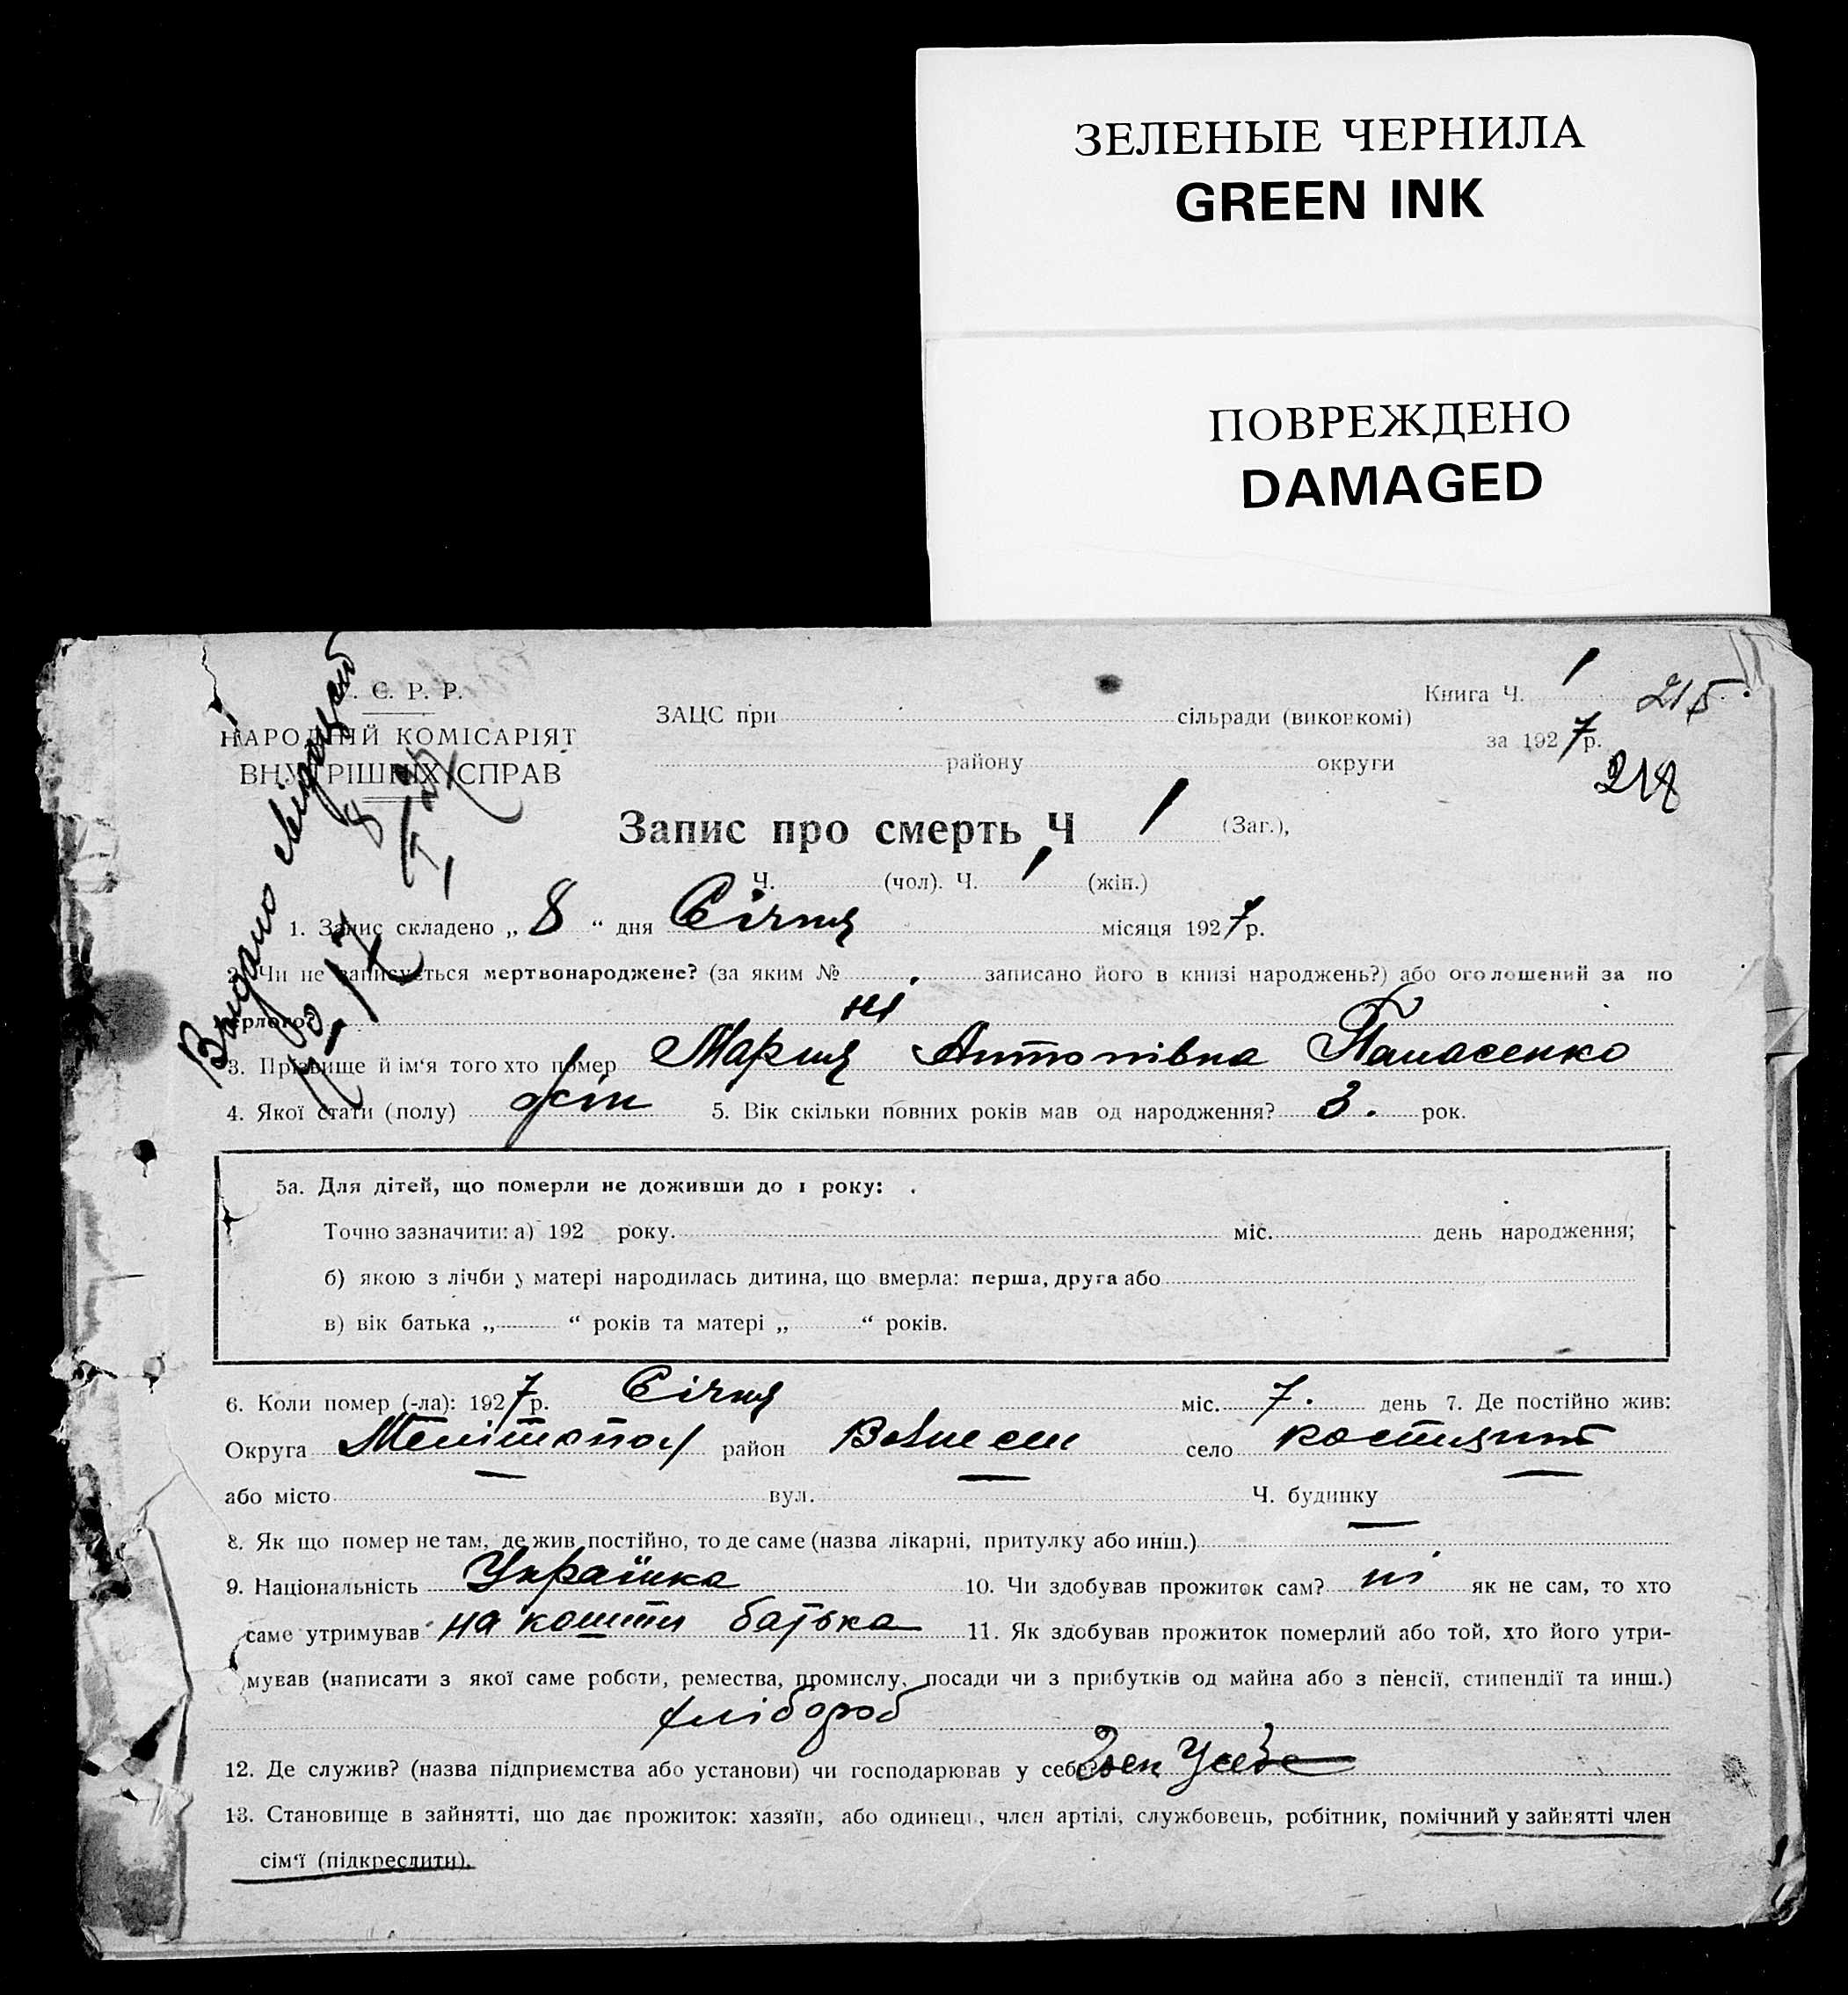 ЗЕЛЕНЫЕ ЧЕРНИЛА
GREEN INK
ПОВРЕЖДЕНО
DAMAGED
. С. Р. Р.
НАРОДНІЙ КОМІСАРІЯТ
ВНУТРІШНІХ СПРАВ
Видано
№ 17
8
ЗАЦС при сільради (виконкомі)
району округи
Книга Ч. 1 215
за 1927 р.
218
Запис про смерть Ч 1 (Заг.),
Ч. (чол). Ч. 1 (жін.)
1. Запис складено „ 8 “ дня Січня місяця 1927 р.
2. Чи не записується мертвонароджене? (за яким № записано його в книзі народжень?) або оголошений за по
мерлого? ні
3. Прізвище й ім‘я того хто помер Мария Антонівна Панасенко
4. Якої стати (полу) жін 5. Вік скільки повних років мав од народження? 3. рок.
5а. Для дітей, що померли не доживши до 1 року:
Точно зазначити: а) 192 року. міс. день народження;
б) якою з лічби у матері народилась дитина, що вмерла: перша, друга або
в) вік батька „ “ років та матері „ “ років.
6. Коли помер (-ла): 1927 р. Січня міс. 7. день 7. Де постійно жив:
Округа Мелітопол район село
або місто вул. Ч. будинку
8. Як що помер не там, де жив постійно, то де саме (назва лікарні, притулку або инш.)
9. Національність Українка 10. Чи здобував прожиток сам? ні як не сам, то хто
саме утримував на кошти батька 11. Як здобував прожиток померлий або той, хто його утри-
мував (написати з якої саме роботи, ремества, промислу, посади чи з прибутків од майна або з пенсії, стипендії та инш.)
хлібороб
12. Де служив? (назва підприємства або установи) чи господарював у себе?
13. Становище в зайнятті, що дає прожиток: хазяїн, або одинець, член артілі, службовець, робітник, помічний у зайнятті член
сім‘ї (підкреслити).